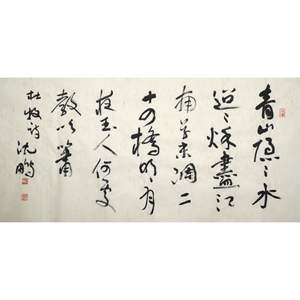 青山隱〻水
迢〻秋盡江
南草未凋二
十四橋明月
夜玉人何處
教吹簫
杜牧詩
沈鵬